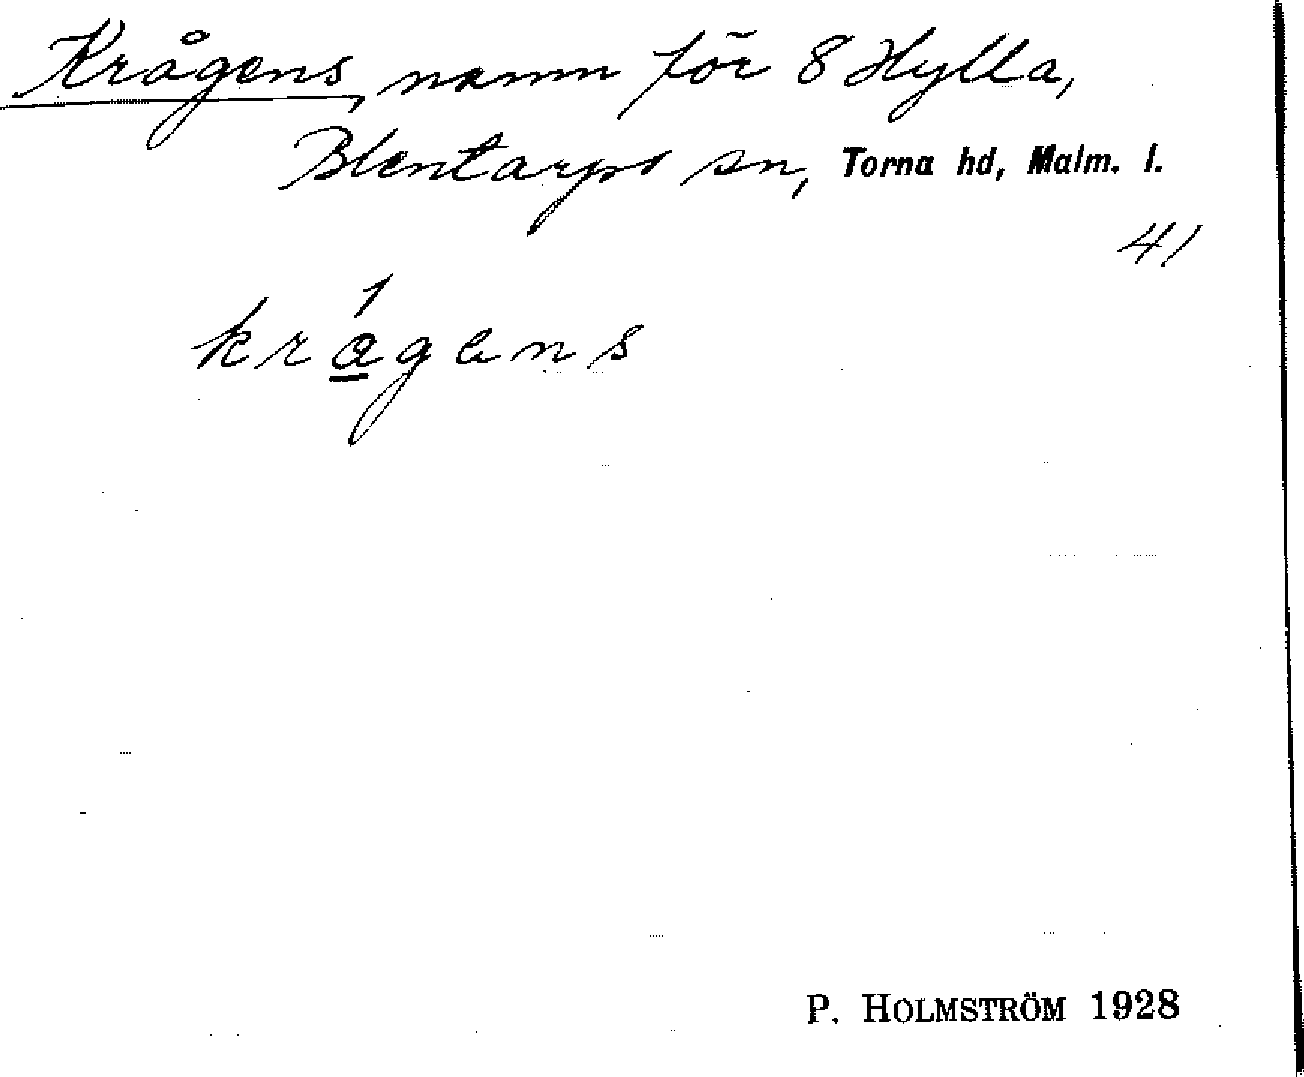 Krågens, namn för 8 Hylla,
Blentarps sn, Torna hd, Malm. l.
41
krågens
P. HOLMSTRÖM 1928